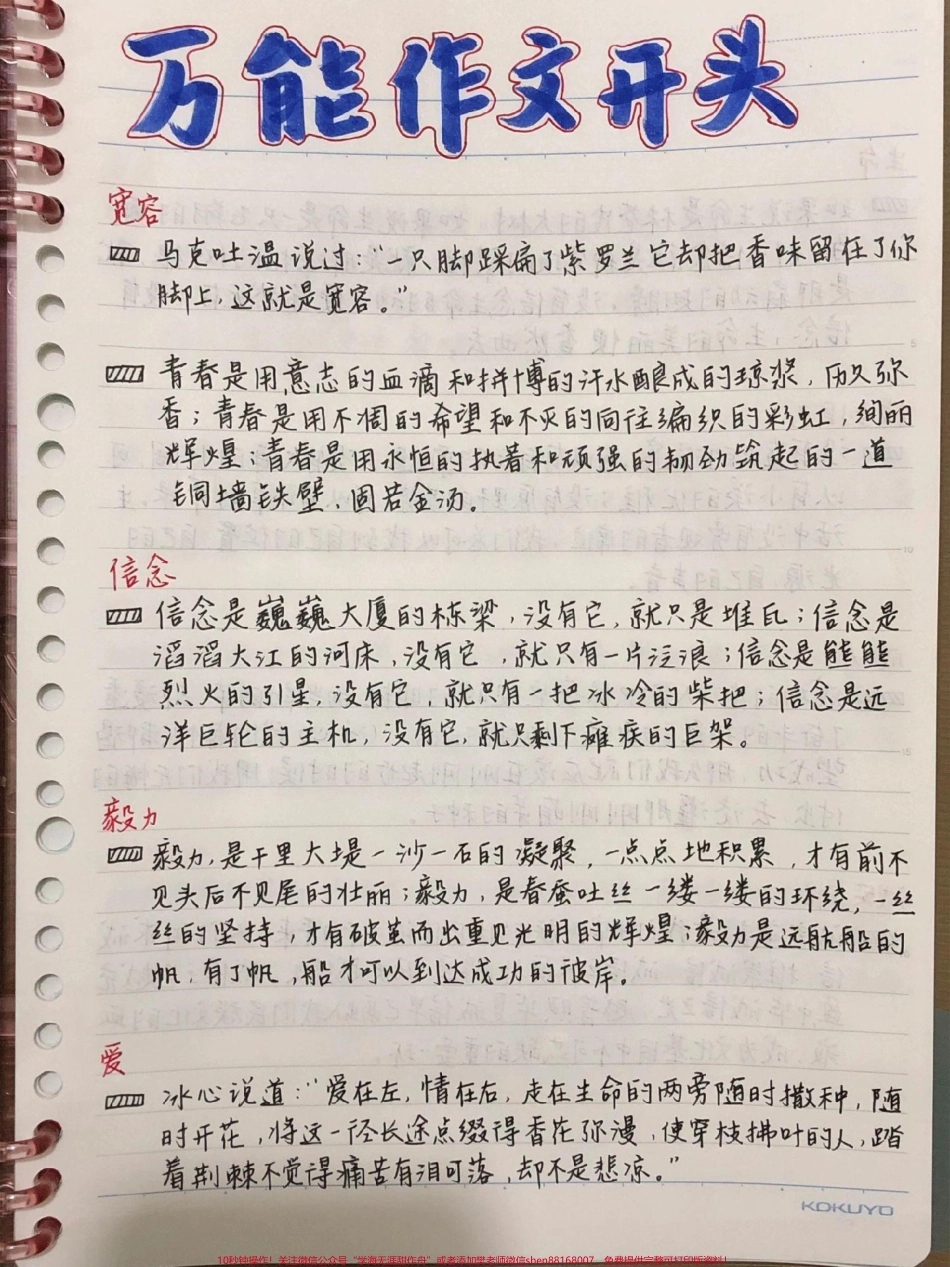 万能作文开头
宽容
马克吐温说过：“一只脚踩扁了紫罗兰它却把香味留在了你
脚上，这就是宽容。”
青春是用意志的血滴和拼博的汗水酿成的琼浆，历久弥
香；青春是用不凋的希望和不灭的向往编织的彩虹，绚丽
辉煌；青春是用永恒的执著和顽强的韧劲筑起的一道
铜墙铁壁、固若金汤。
信念
信念是巍巍大厦的栋梁，没有它，就只是堆瓦；信念是
滔滔大江的河床，没有它，就只有一片泛浪；信念是熊熊
烈火的引星，没有它，就只有一把冰冷的柴把；信念是远
洋巨轮的主机，没有它，就只剩下瘫痪的巨架。
毅力
毅力，是千里大堤一沙一石的凝聚，一点点地积累，才有前不
见头后不见尾的壮丽；毅力，是春蚕吐丝一缕一缕的环绕，一丝
丝的坚持，才有破茧而出重见光明的辉煌；毅力是远航船的
帆，有了帆，船才可以到达成功的彼岸。
爱
冰心说道：“爱在左，情在右，走在生命的两旁随时撒种，随
时开花，将这一径长途点缀得香花弥漫，使穿枝拂叶的人，踏
着荆棘不觉得痛苦有泪可落，却不是悲凉。”
KOKUYO
10秒钟操作！关注微信公众号“学海无涯甜作舟”或者添加学老师微信shen88168007，免费提供完整可打印版资料！